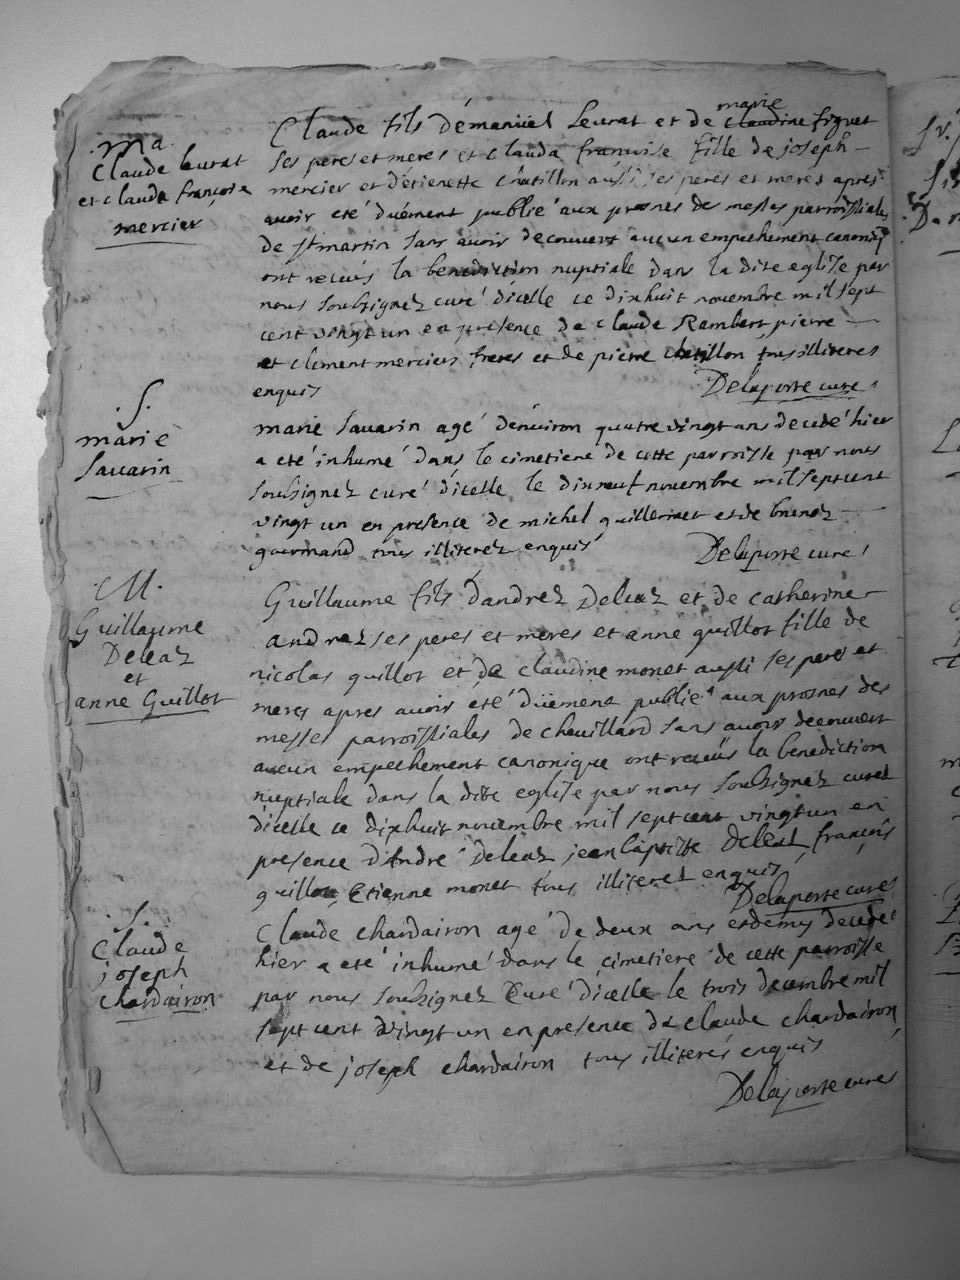 ma
Claude leurat
et claude françoise
mercier
Claude fils démanüel Leurat et de claudine figuet
marie
ses peres et meres et clauda francoise fille de joseph
mercier et détienette chatillon aussi ses peres et meres apres
avoir eté duëment publié aux prosnes des messes parroissiales
de st martin sans avoir decouvert aucun empechement canoniq
ont recuës la benediction nuptiale dans la dite eglise par
nous soubsignez curé dicelle ce dixhuit novembre mil sept
cent vingt un en presence de claude Rambert pierre
et clement merciers freres et de pierre chatillon tous illiteres
enquis
Delaporte curé
S.
marie
Savarin
marie Savarin agé dénviron quatre vingt ans decedé hier
a eté inhumé dans le cimetiere de cette parroisse par nous
soubsignez curé dicelle le dixneuf novembre mil sept cent
vingt un en presence de michel guillermet et de
gourmand tous illiterez enquis
Delaporte curé
M.
Guillaume
Deleaz
et
anne Guillot
Guillaume fils dandrez Deleaz et de catherine
andrez ses peres et meres et anne guillot fille de
nicolas guillot et de claudine monet aussi ses peres et
meres apres avoir eté düement publié aux prosnes des
messes parroissiales de cheuillard sans avoir decouvert
aucun empechement canonique ont recuës la benediction
nuptiale dans la dite eglise par nous soubsignez curez
dicelle ce dixhuit novembre mil sept cent vingt un en
presence dAndré Deleaz jean baptiste Deleaz françois
guillot Etienne monet tous illiterez enquis
Delaporte curé
S.
Claude
joseph
chardairon
Claude chardairon agé de deux ans et demy decedé
hier a eté inhumé dans le cimetiere de cette parroisse
par nous soubsignez Curé dicelle le trois decembre mil
sept cent vingt un en presence de claude chardairon
et de joseph chardairon tous illiterés enquis
Delaporte curé